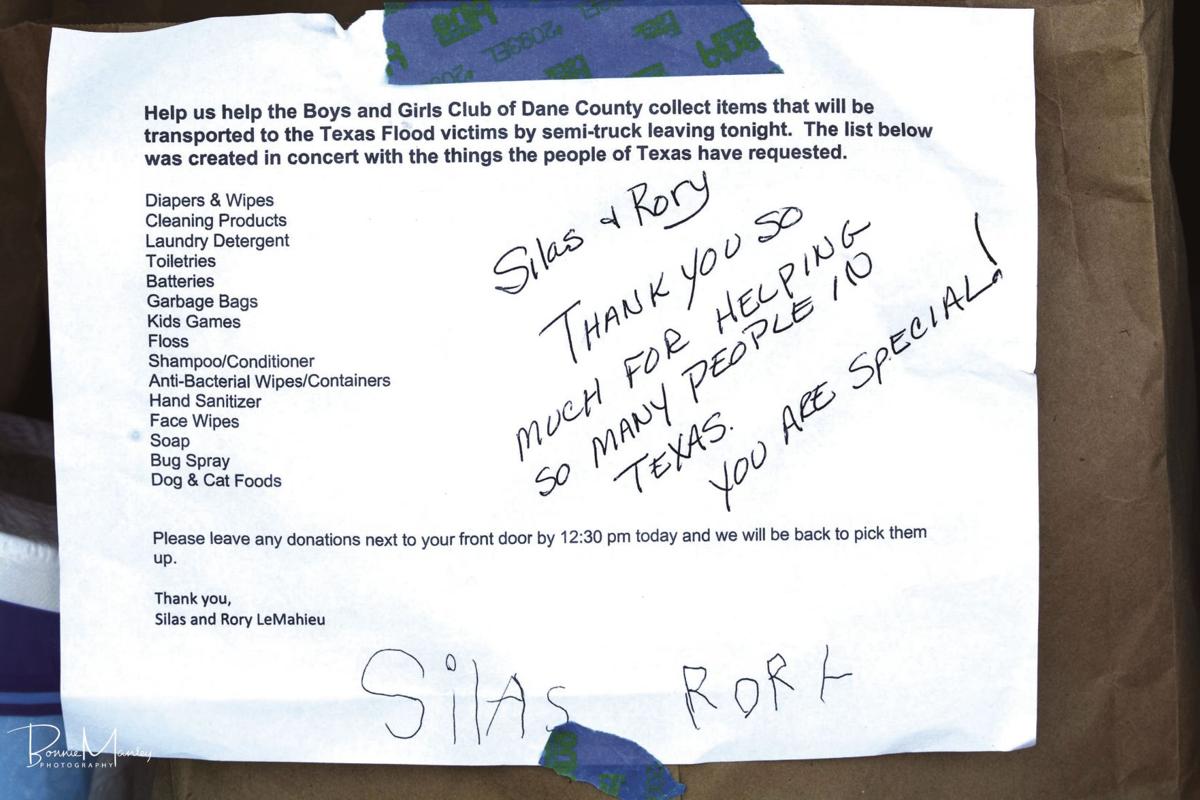 Help us help the Boys and Girls Club of Dane County collect items that will be
transported to the Texas Flood victims by semi-truck leaving tonight.  The list below
was created in concert with the things the people of Texas have requested.
Diapers & Wipes
Cleaning Products
Laundry Detergent
Toiletries
Batteries
Garbage Bags
Kids Games
Floss
Shampoo/Conditioner
Anti-Bacterial Wipes/Containers
Hand Sanitizer
Face Wipes
Soap
Bug Spray
Dog & Cat Foods
Silas & Rory
THANK YOU SO
MUCH FOR HELPING
SO MANY PEOPLE IN
TEXAS.
YOU ARE SPECIAL!
Please leave any donations next to your front door by 12:30 pm today and we will be back to pick them
up.
Thank you,
Silas and Rory LeMahieu
SilAs RORY
Bonnie Manley
PHOTOGRAPHY